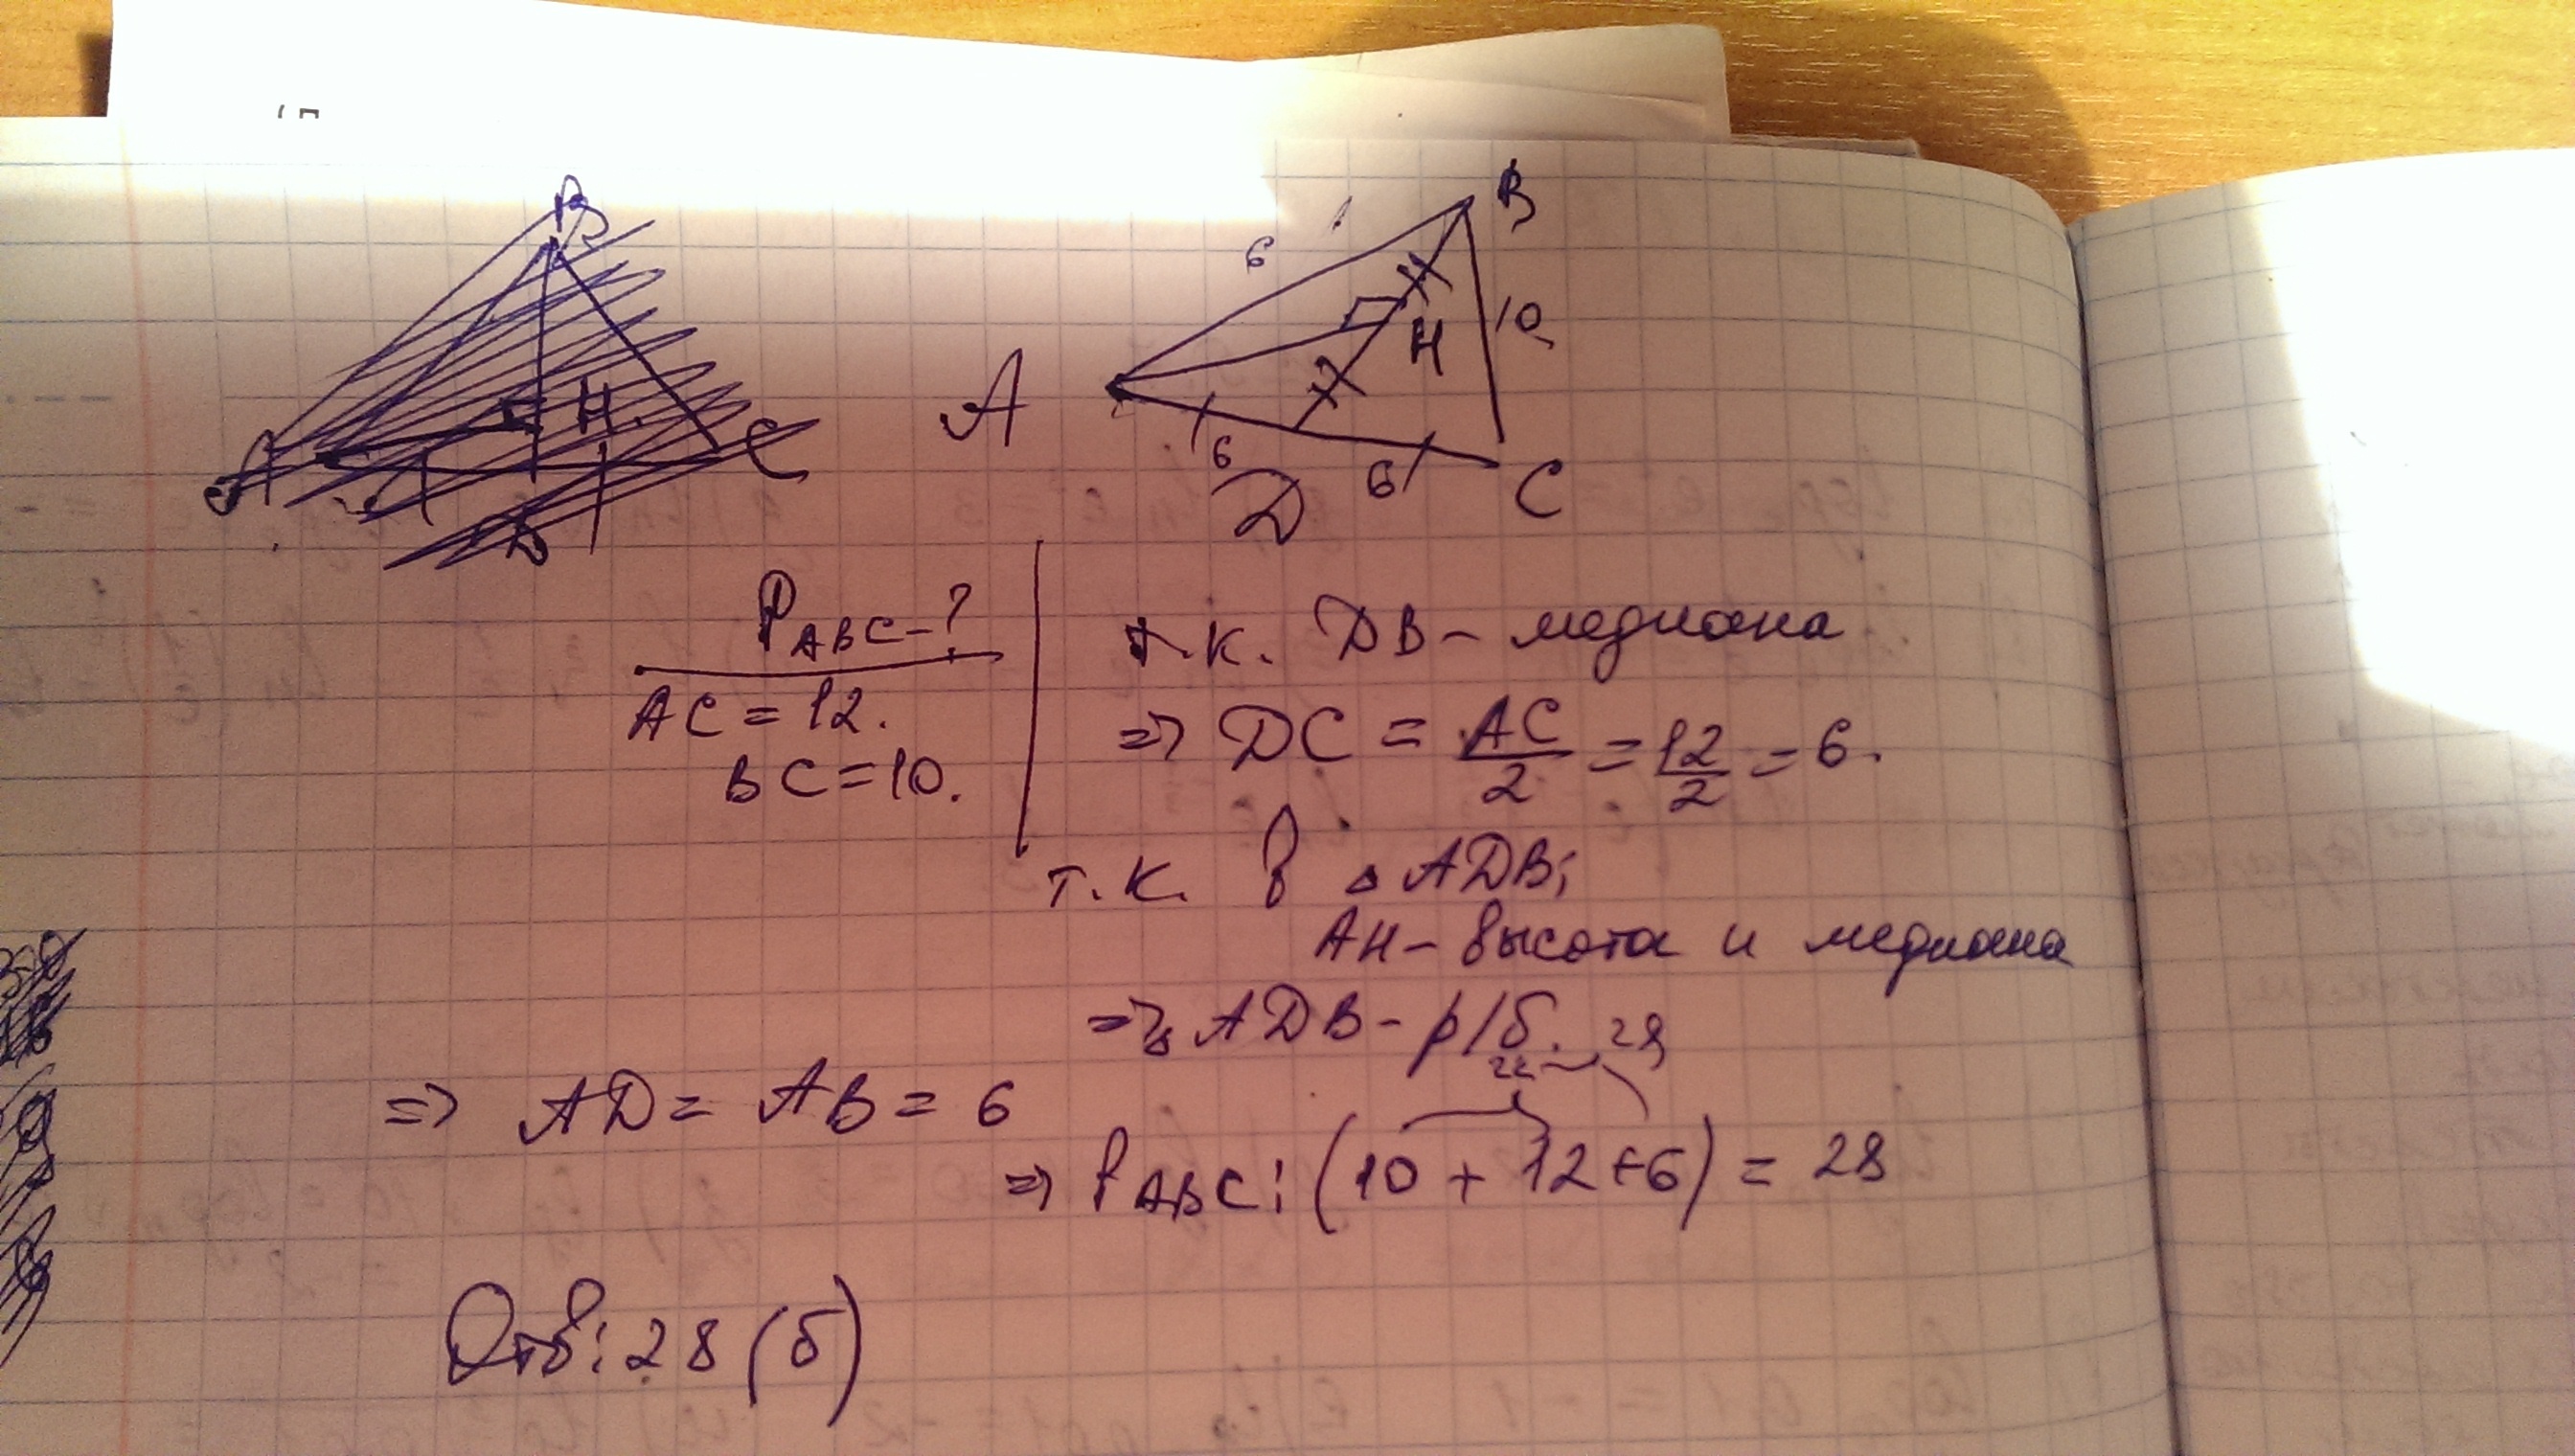 B
H
C
D
B
6
10
H
A
6
6
D
C
P ABC - ?
AC = 12.
BC = 10.
т.к. DB - медиана
=> DC = AC/2 = 12/2 = 6.
т.к. в △ADB;
AH - высота и медиана
=> △ADB - р/б.
22 28
=> AD = AB = 6
=> P ABC: (10 + 12 + 6) = 28
Отв: 28 (б)